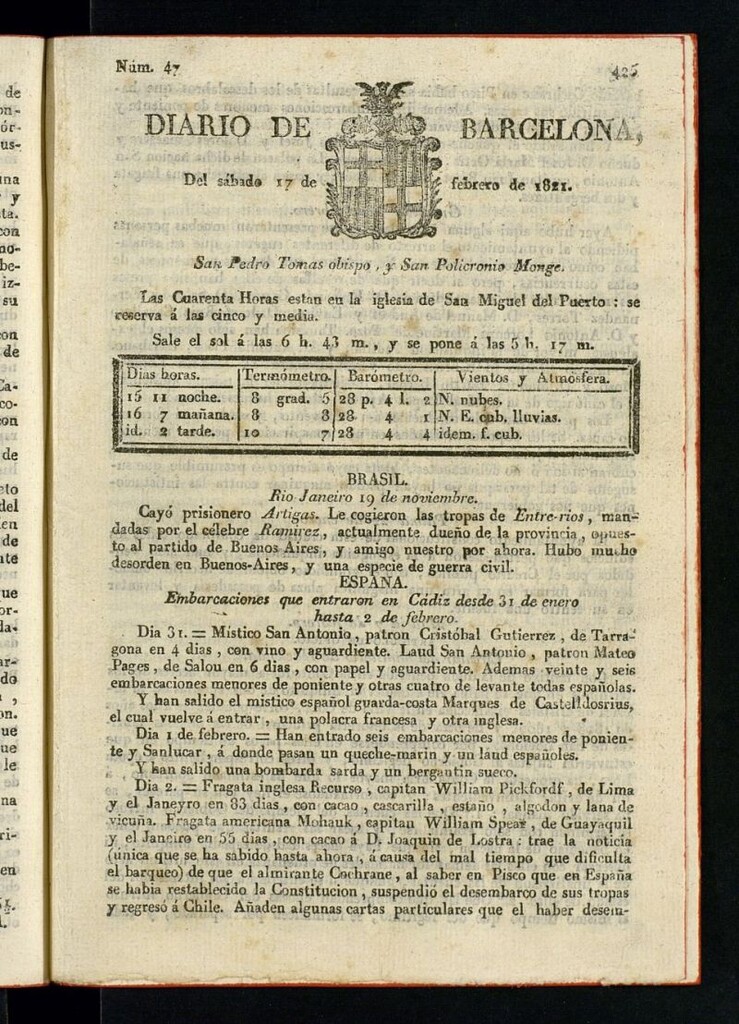 Núm. 47 425
DIARIO DE BARCELONA,
Del sábado 17 de febrero de 1821.
San Pedro Tomas obispo, y San Policronio Monge.
Las Cuarenta Horas estan en la iglesia de San Miguel del Puerto : se
reserva á las cinco y media.
Sale el sol á las 6 h. 43 m., y se pone á las 5 h. 17 m.
Dias horas. Termómetro. Barómetro. Vientos y Atmósfera.
15 11 noche. 8 grad. 5 28 p. 4 l. 2 N. nubes.
16 7 mañana. 8 8 28 4 1 N. E. cub. lluvias.
id. 2 tarde. 10 7 28 4 4 idem. f. cub.
BRASIL.
Rio Janeiro 19 de noviembre.
Cayó prisionero Artigas. Le cogieron las tropas de Entre-rios, man-
dadas por el célebre Ramirez, actualmente dueño de la provincia, opues-
to al partido de Buenos Aires, y amigo nuestro por ahora. Hubo mucho
desorden en Buenos-Aires, y una especie de guerra civil.
ESPAÑA.
Embarcaciones que entraron en Cádiz desde 31 de enero
hasta 2 de febrero.
Dia 31. = Místico San Antonio, patron Cristóbal Gutierrez, de Tarra-
gona en 4 dias, con vino y aguardiente. Laud San Antonio, patron Mateo
Pages, de Salou en 6 dias, con papel y aguardiente. Ademas veinte y seis
embarcaciones menores de poniente y otras cuatro de levante todas españolas.
Y han salido el mistico español guarda-costa Marques de Castelldosrius,
el cual vuelve á entrar, una polacra francesa y otra inglesa.
Dia 1 de febrero. = Han entrado seis embarcaciones menores de ponien-
te y Sanlucar, á donde pasan un queche-marin y un laud españoles.
Y han salido una bombarda sarda y un bergantin sueco.
Dia 2. = Fragata inglesa Recurso, capitan William Pickfordf, de Lima
y el Janeyro en 83 dias, con cacao, cascarilla, estaño, algodon y lana de
vicuña. Fragata americana Mohauk, capitan William Spear, de Guayaquil
y el Janeiro en 55 dias, con cacao á D. Joaquin de Lostra : trae la noticia
(única que se ha sabido hasta ahora, á causa del mal tiempo que dificulta
el barqueo) de que el almirante Cochrane, al saber en Pisco que en España
se habia restablecido la Constitucion, suspendió el desembarco de sus tropas
y regresó á Chile. Añaden algunas cartas particulares que el haber desem-